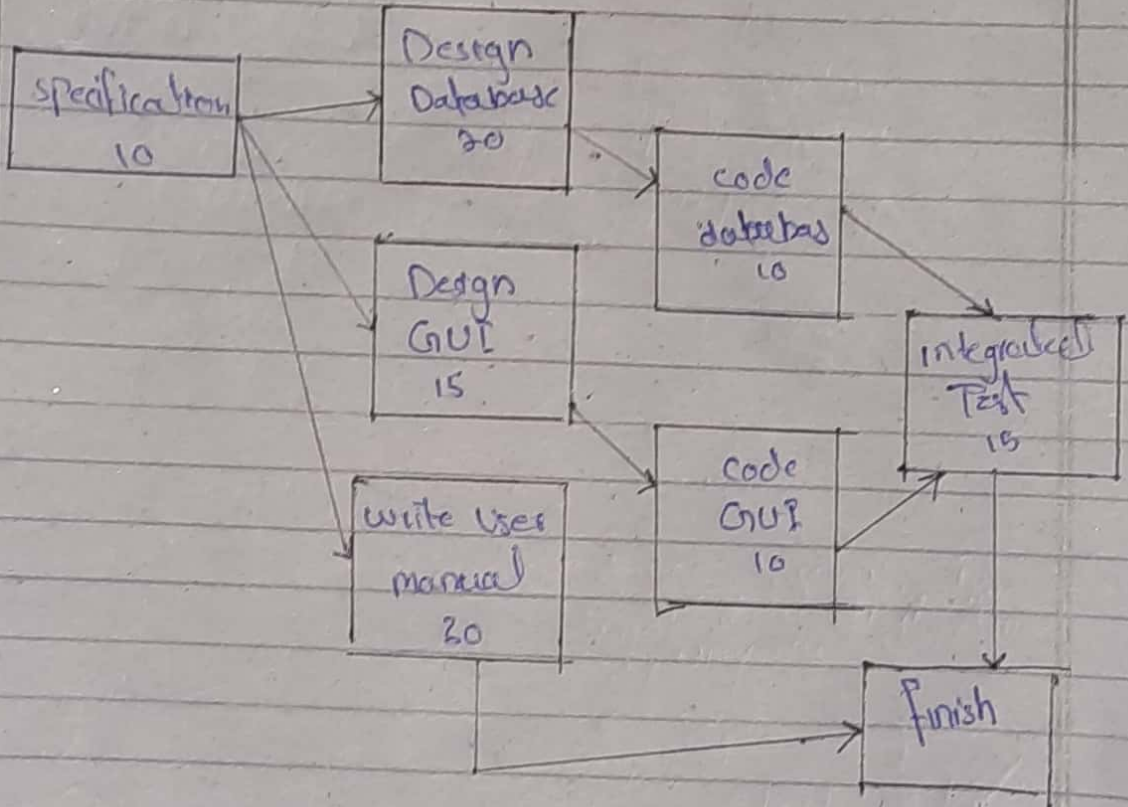 Specification
10
Design
Database
20
code
databas
10
Design
GUI
15
integrated
Test
15
Code
GUI
10
write User
manual
20
finish